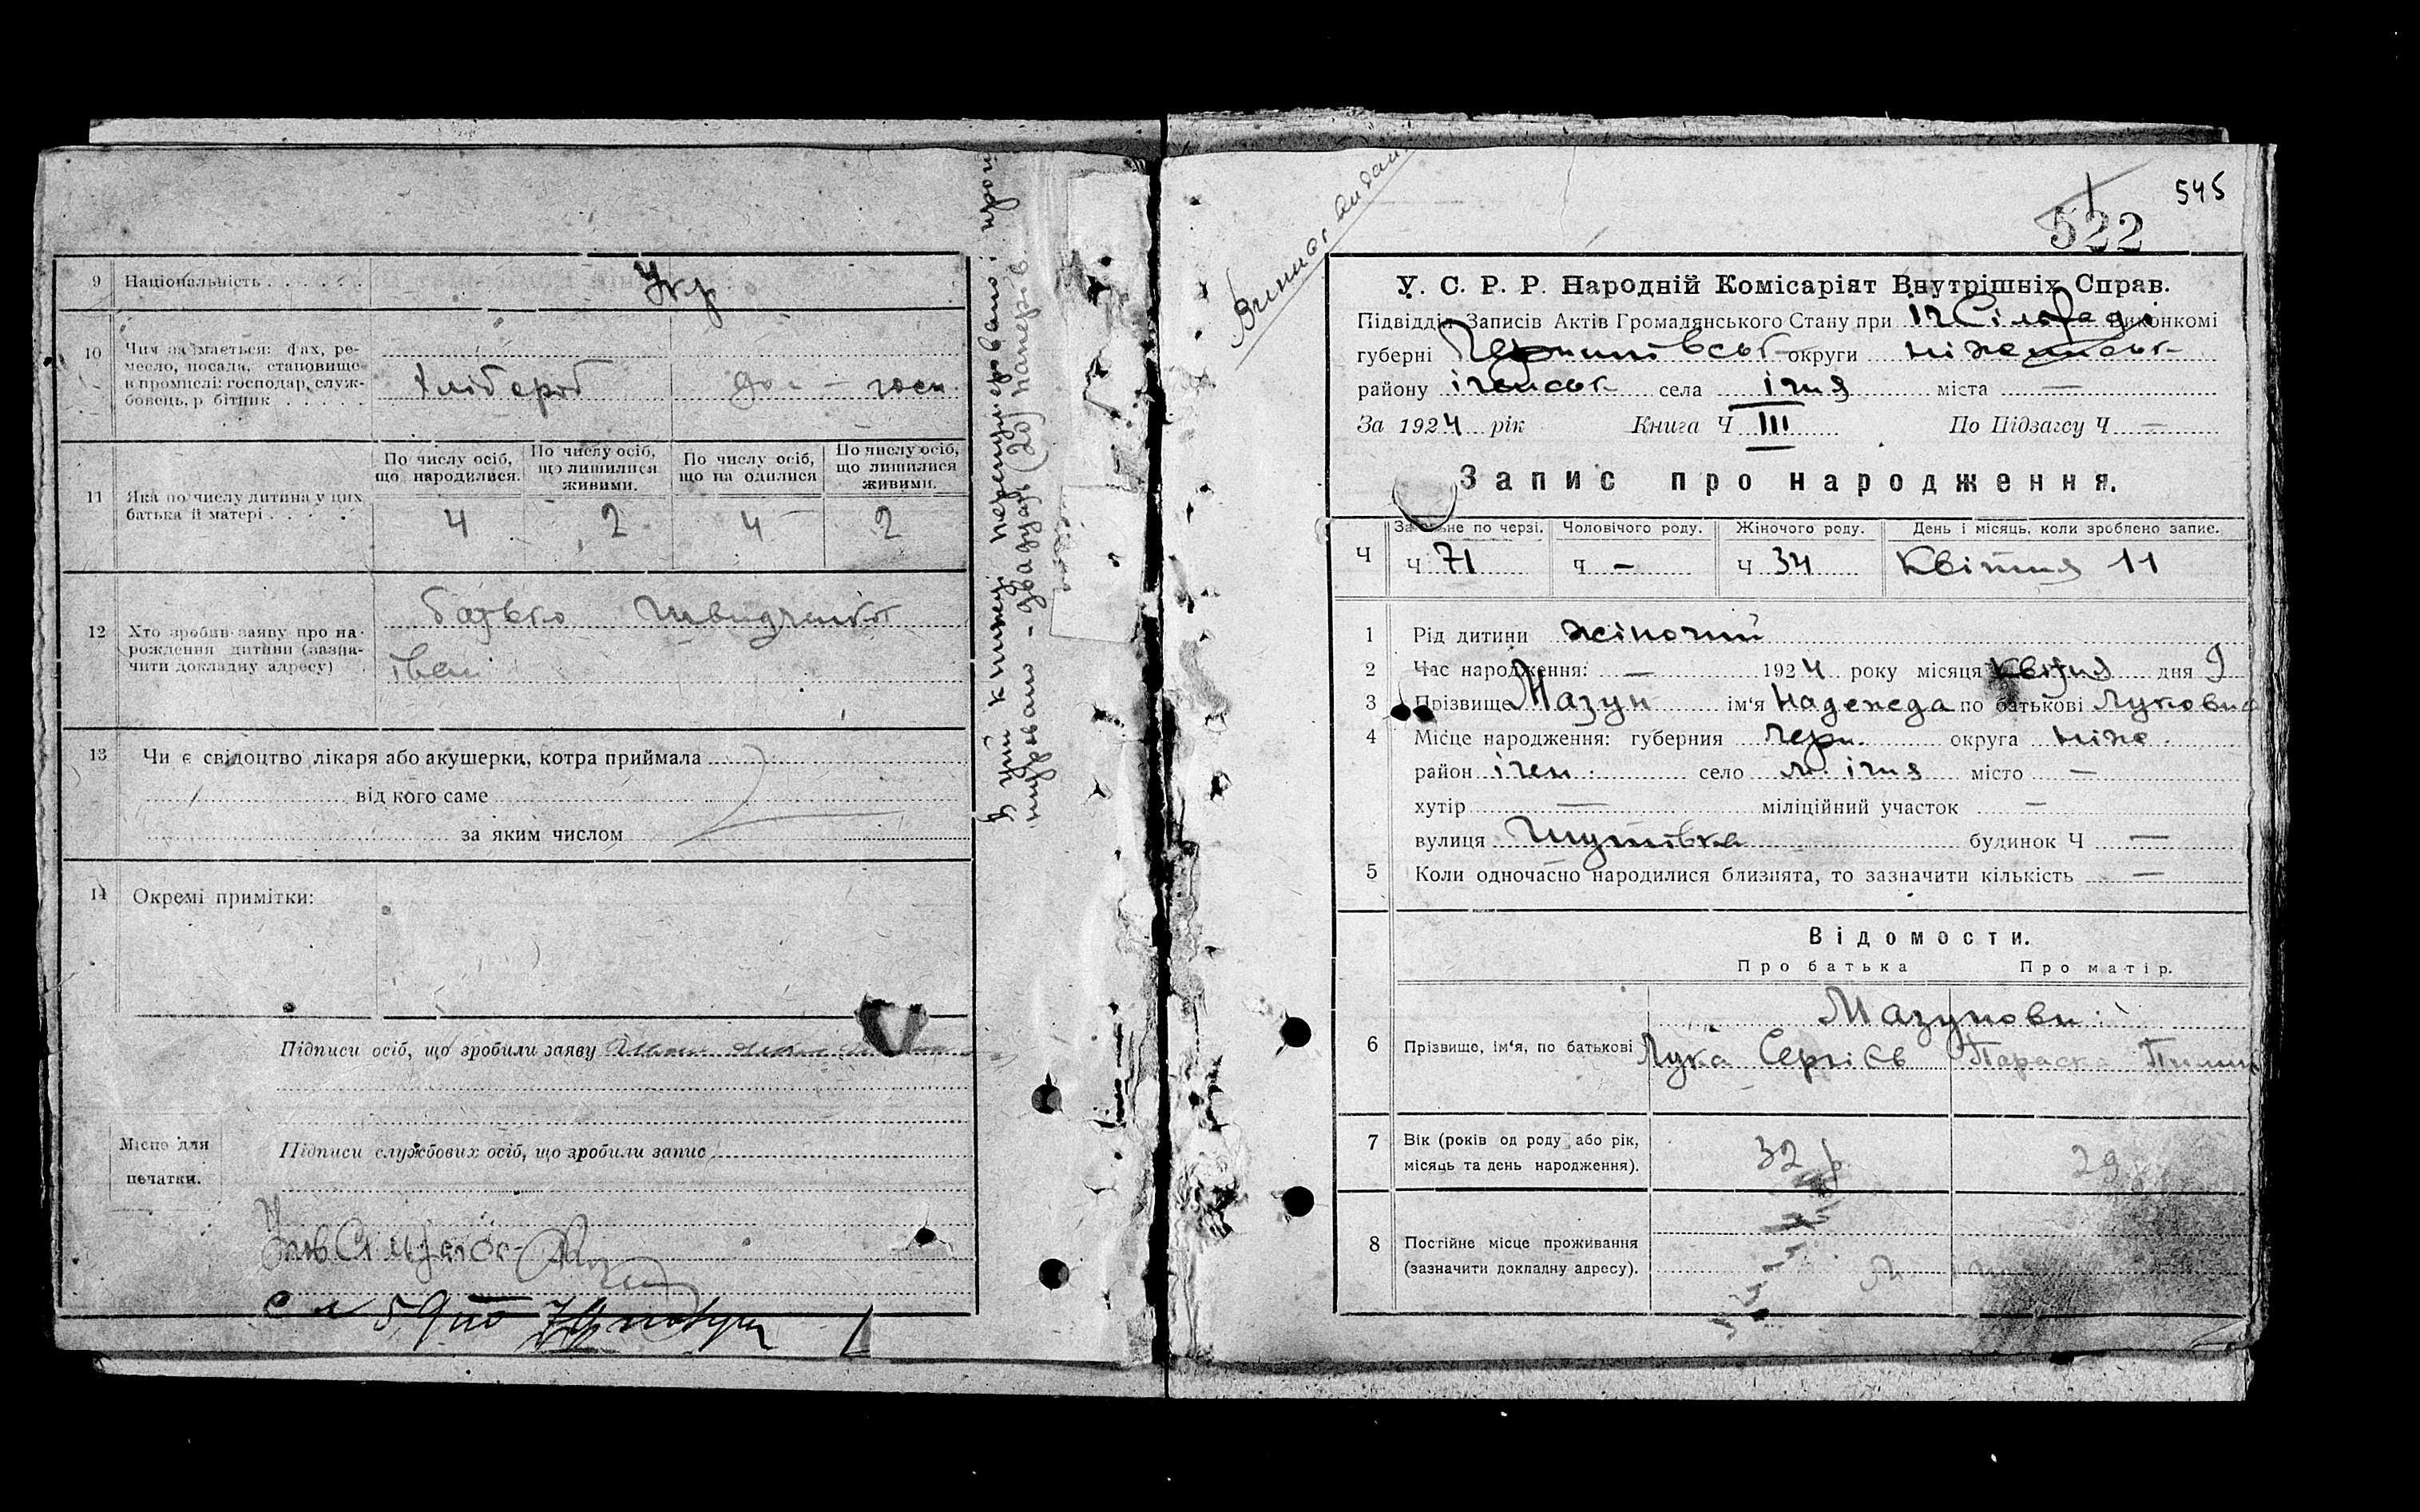 9 Національність Укр
10 Чим займається: фах, ре-
месло, посада, становище
в промислі: господар, служ-
бовець, робітник хлібероб дом - госп.
11 Яка по числу дитина у цих
батька й матері
По числу осіб, що народилися. По числу осіб, що лишилися живими. По числу осіб, що народилися По числу осіб, що лишилися живими.
4 2 4 2
12 Хто зробив заяву про на-
рождення дитини (зазна-
чити докладну адресу)
батько Швидченко
Іван
13 Чи є свідоцтво лікаря або акушерки, котра приймала
від кого саме
за яким числом
14 Окремі примітки:
Підписи осіб, що зробили заяву
Місце для
печатки.
Підписи службових осіб, що зробили запис
В цій книжці перенумеровано і прош
нуровано - двадцять (20) паперів.
545
522
У. С. Р. Р. Народній Комісаріят Внутрішніх Справ.
Підвідділ Записів Актів Громадянського Стану при Іч Сільраді Виконкомі
губерні Чернигівськ округи Ніженськ
району Іченськ села Ічня міста —
За 1924 рік Книга Ч III По Підзагсу Ч —
Запис про народження.
Ч
Загальне по черзі. Чоловічого роду. Жіночого роду. День і місяць, коли зроблено запис.
Ч 71 Ч — Ч 34 Квітня 11
1 Рід дитини жіночий
2 Час народження: — 1924 року місяця квітня дня 9
3 Прізвище Мазун ім'я Надежда по батькові Луковна
4 Місце народження: губерния Черн. округа Ніже.
район Ічен. село м. Ічня місто —
хутір — міліційний участок —
вулиця будинок Ч —
5 Коли одночасно народилися близнята, то зазначити кількість —
Відомости.
Про батька Про матір.
Мазунови
6 Прізвище, ім'я, по батькові Лука Сергієв Параска
7 Вік (років од роду або рік,
місяць та день народження). 32 р 29
8 Постійне місце проживання
(зазначити докладну адресу).